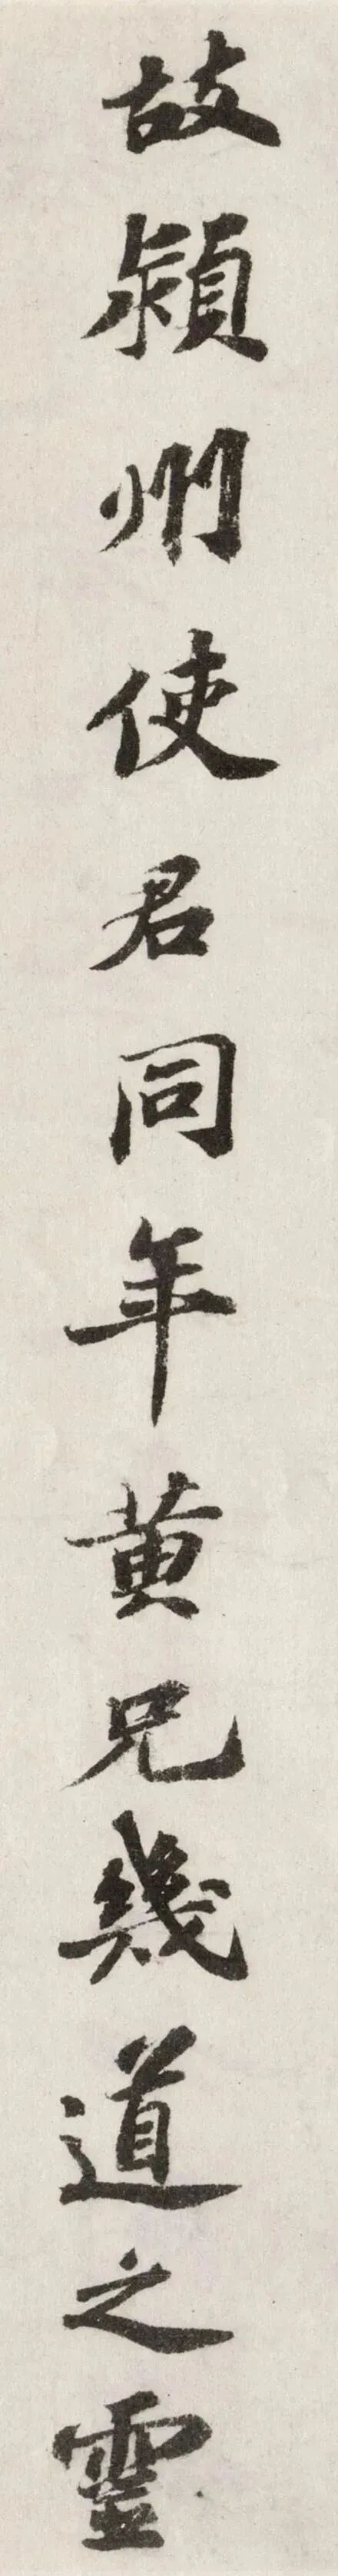 故潁州使君同年黄兄幾道之靈